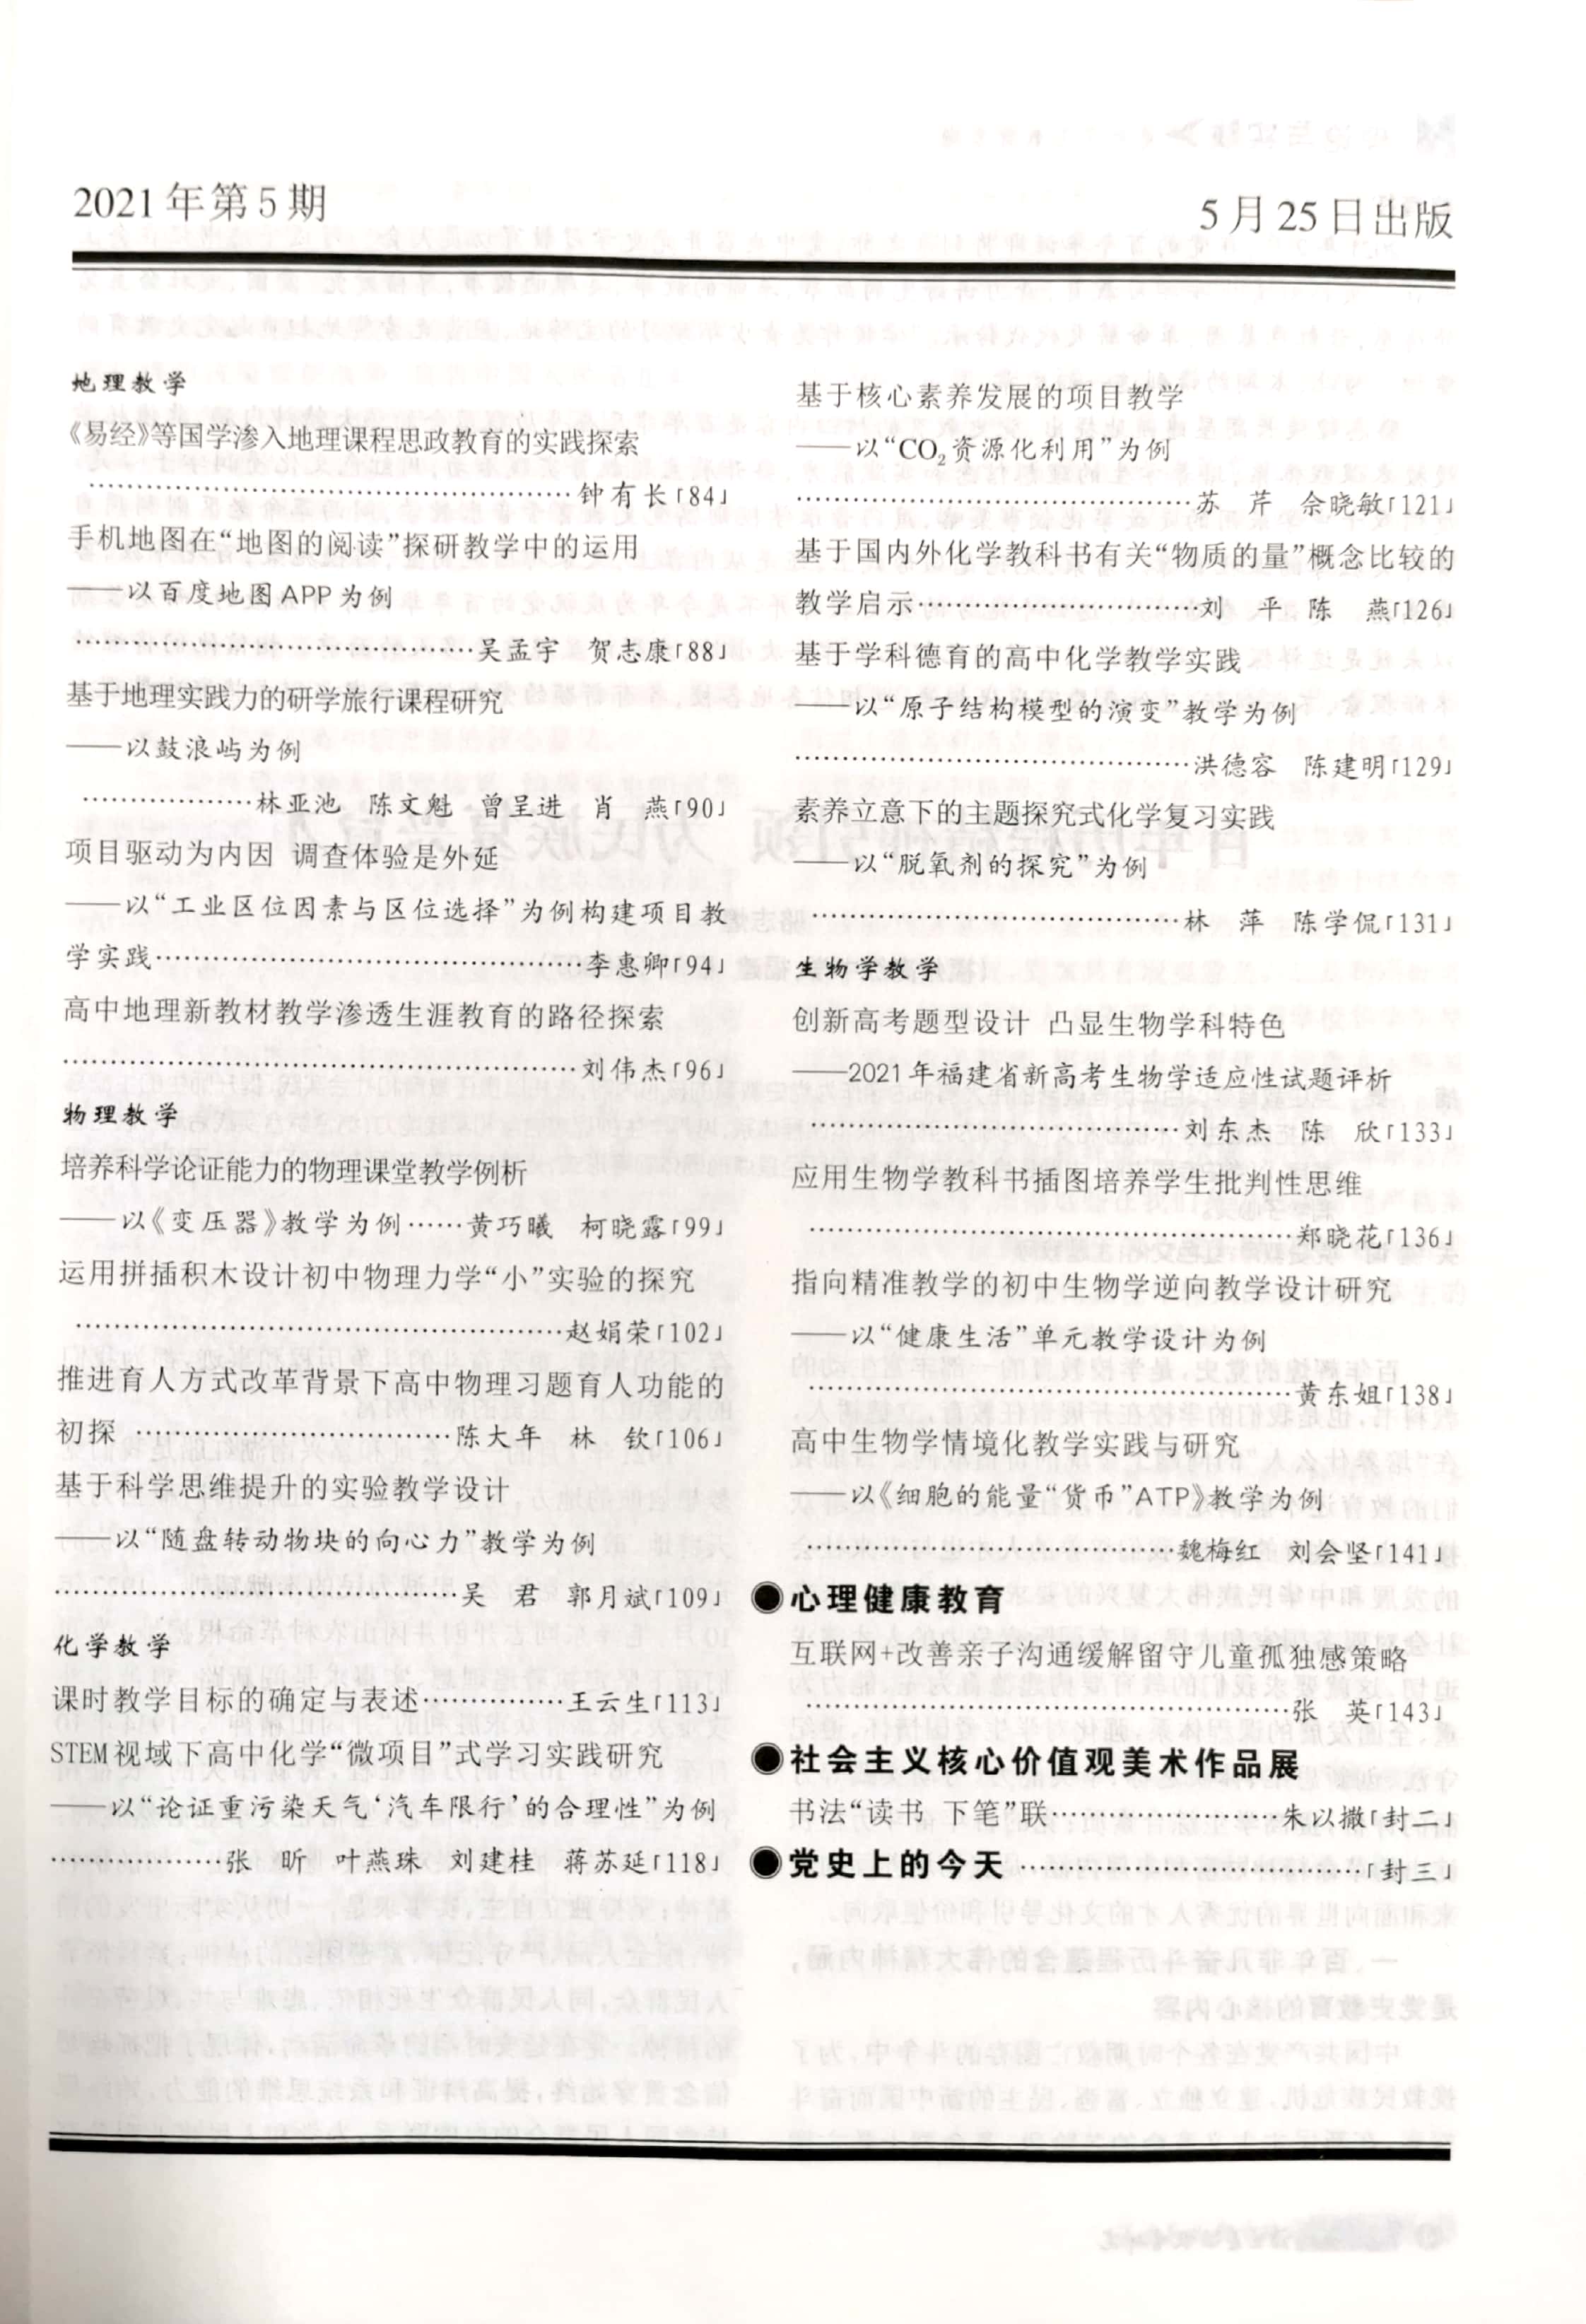 2021年第5期
5月25日出版
地理教学
《易经》等国学渗入地理课程思政教育的实践探索
………………………………………钟有长「84」
手机地图在“地图的阅读”探研教学中的运用
——以百度地图APP为例
………………………………吴孟宇 贺志康「88」
基于地理实践力的研学旅行课程研究
——以鼓浪屿为例
……………林亚池 陈文魁 曾呈进 肖 燕「90」
项目驱动为内因 调查体验是外延
——以“工业区位因素与区位选择”为例构建项目教
学实践…………………………………李惠卿「94」
高中地理新教材教学渗透生涯教育的路径探索
…………………………………………刘伟杰「96」
物理教学
培养科学论证能力的物理课堂教学例析
——以《变压器》教学为例……黄巧曦 柯晓露「99」
运用拼插积木设计初中物理力学“小”实验的探究
………………………………………赵娟荣「102」
推进育人方式改革背景下高中物理习题育人功能的
初探 ………………………陈大年 林 钦「106」
基于科学思维提升的实验教学设计
——以“随盘转动物块的向心力”教学为例
………………………………吴 君 郭月斌「109」
化学教学
课时教学目标的确定与表述……………王云生「113」
STEM视域下高中化学“微项目”式学习实践研究
——以“论证重污染天气‘汽车限行’的合理性”为例
……………张 昕 叶燕珠 刘建桂 蒋苏延「118」
基于核心素养发展的项目教学
——以“CO₂资源化利用”为例
………………………………苏 芹 佘晓敏「121」
基于国内外化学教科书有关“物质的量”概念比较的
教学启示………………………刘 平 陈 燕「126」
基于学科德育的高中化学教学实践
——以“原子结构模型的演变”教学为例
………………………………洪德容 陈建明「129」
素养立意下的主题探究式化学复习实践
——以“脱氧剂的探究”为例
………………………………林 萍 陈学侃「131」
生物学教学
创新高考题型设计 凸显生物学科特色
——2021年福建省新高考生物学适应性试题评析
………………………………刘东杰 陈 欣「133」
应用生物学教科书插图培养学生批判性思维
………………………………………郑晓花「136」
指向精准教学的初中生物学逆向教学设计研究
——以“健康生活”单元教学设计为例
………………………………………黄东姐「138」
高中生物学情境化教学实践与研究
——以《细胞的能量“货币”ATP》教学为例
………………………………魏梅红 刘会坚「141」
●心理健康教育
互联网+改善亲子沟通缓解留守儿童孤独感策略
………………………………………张 英「143」
●社会主义核心价值观美术作品展
书法“读书 下笔”联…………………朱以撒「封二」
●党史上的今天 …………………………「封三」